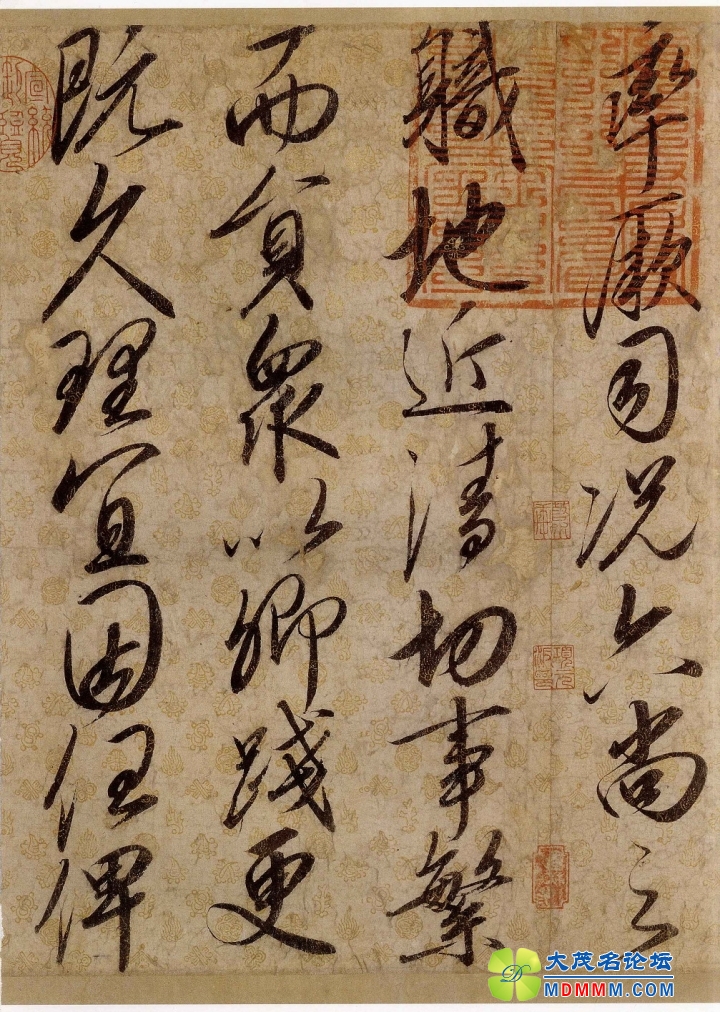 率厥司況六尚之
職地近清切事繁
而員衆以卿踐更
既久理宜因任俾
大茂名论坛
MDMMM.COM